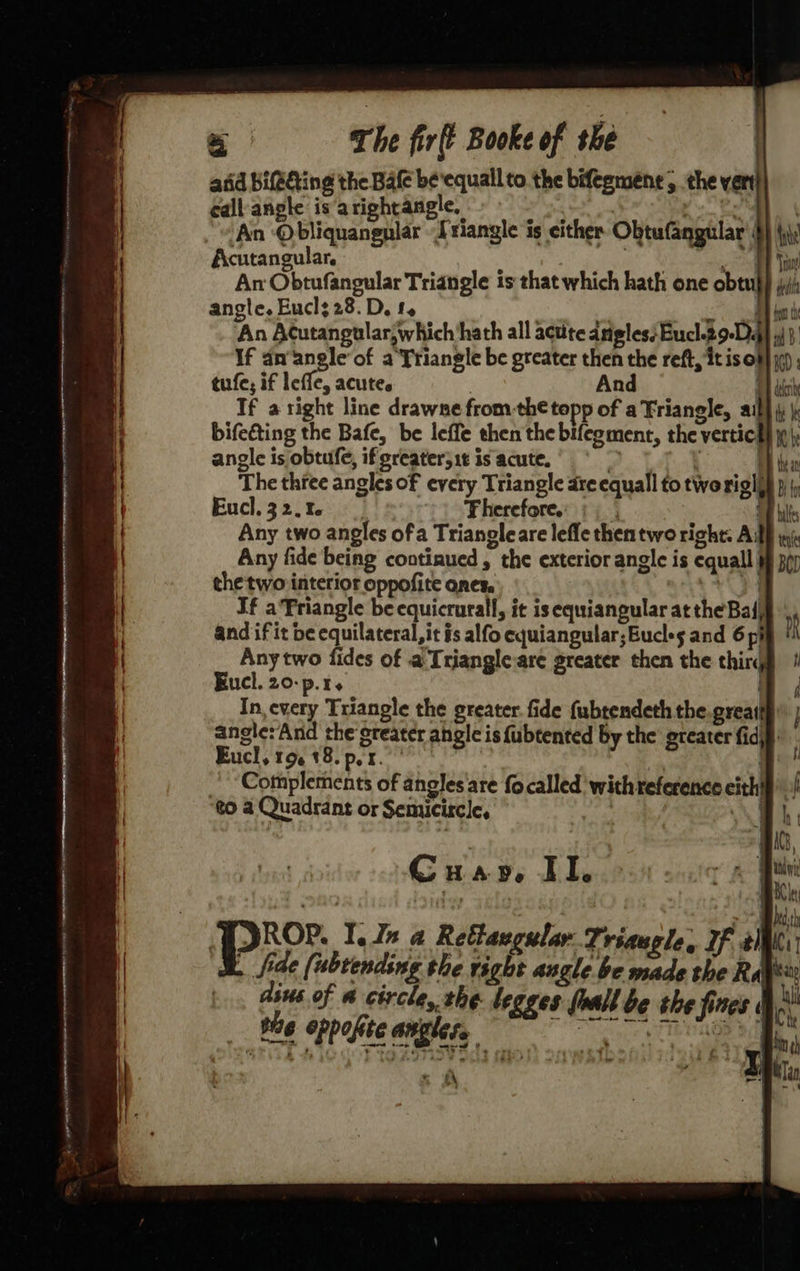 The firſt Booke of the
and biſecting the Baſe be equall to the biſegment, the verti
call angle is a right angle.
An Obliquangular Triangle is either Obtuſangular
Acutangular.
An Obtuſangular Triangle is that which hath one obtu
angle. Eucl: 28. D. 1.
An Acutangular, which hath all acute angles. Eucl. 29. D.
If an angle of a Triangle be greater then the reſt, it is o
tuſe; if leſſe, acute. And
If a right line drawne from the topp of a Triangle, a
biſecting the Baſe, be leſſe then the biſegment, the vertic
angle is obtuſe, if greater, it is acute.
The three angles of every Triangle are equall to two rig
Eucl. 32. 1. Therefore.
Any two angles of a Triangle are leſſe then two right. A
Any ſide being continued, the exterior angle is equall
the two interior oppoſite ones.
If a Triangle be equicrurall, it is equiangular at the Baſ
and if it be equilateral, it is alſo equiangular; Eucl. 5 and 6 p
Any two ſides of a Triangle are greater then the thir
Eucl. 20. p. 1.
In every Triangle the greater ſide ſubtendeth the great
angle: And the greater angle is ſubtented by the greater ſid
Eucl. 19. 18. p. 1.
Complements of angles are ſo called with reference eith
to a Quadrant or Semicircle.
CHAP. II.
PROP. I. In a Rectangular Triangle, If th
ſide ſubtending the right angle be made the Ra
dius of a circle, the legges ſhall be the ſines
the oppoſite angles.